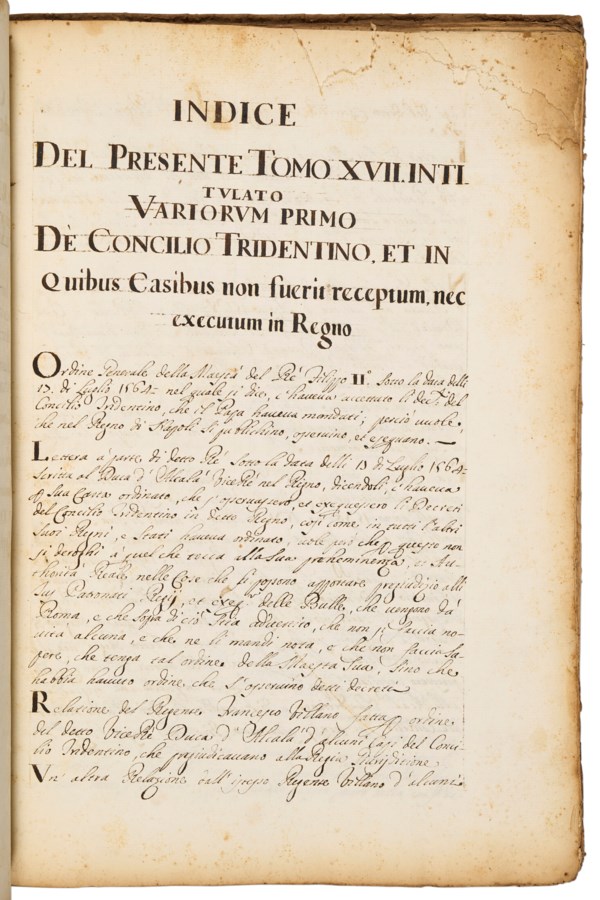 INDICE
DEL PRESENTE TOMO XVII. INTI
TVLATO
VARIORVM PRIMO
DÈ CONCILIO TRIDENTINO, ET IN
Quibus Casibus non fuerit receptum, nec
executum in Regno
Ordine Generale della Maestà del Rè Filippo II° sotto la data delli
13. di luglio 1564 nel quale si dice, c'haueua accettato li decr. del
Concilio Tridentino, che il Papa haueua mandati, perciò vuole,
che nel Regno di Napoli si publichino, osseruino, et esequano.
Lettera à parte di detto Rè sotto la data delli 13 di Luglio 1564
scritta al Duca d'Alcalà Vicerè nel Regno, dicendoli, c'haueua
sua Carta ordinato, che s'osseruassero, et exequissero li Decreti
del Concilio Tridentino in detto Regno, così come in tutti l'altri
suoi Regni, e Stati haueua ordinato, vole però che questo non
si deroghi à quel che tocca alla Sua preheminenza, et Au-
thorità Reale, nelle Cose che si possono apportare pregiudizio alli
Jus Patronati Regij, et exeq.r delle Bulle, che vengono dà
Roma, e che sopra di ciò stia aduertito, che non si faccia no-
uità alcuna, e che ne li mandi nota, e che non faccia sa-
pere, che tenga tal ordine della Maestà Sua, sino che
habbia hauuto ordine che s'osseruino detti decreti
Relatione del Regente Francesco Villano fatta ordine
del detto Vicerè Duca d'Alcalà d'alcuni Capi del Conci-
lio Tridentino, che pregiudicauano alla Regia Giurisdizione
Vn' altra Relazione dall' istesso Regente Villano d'alcuni